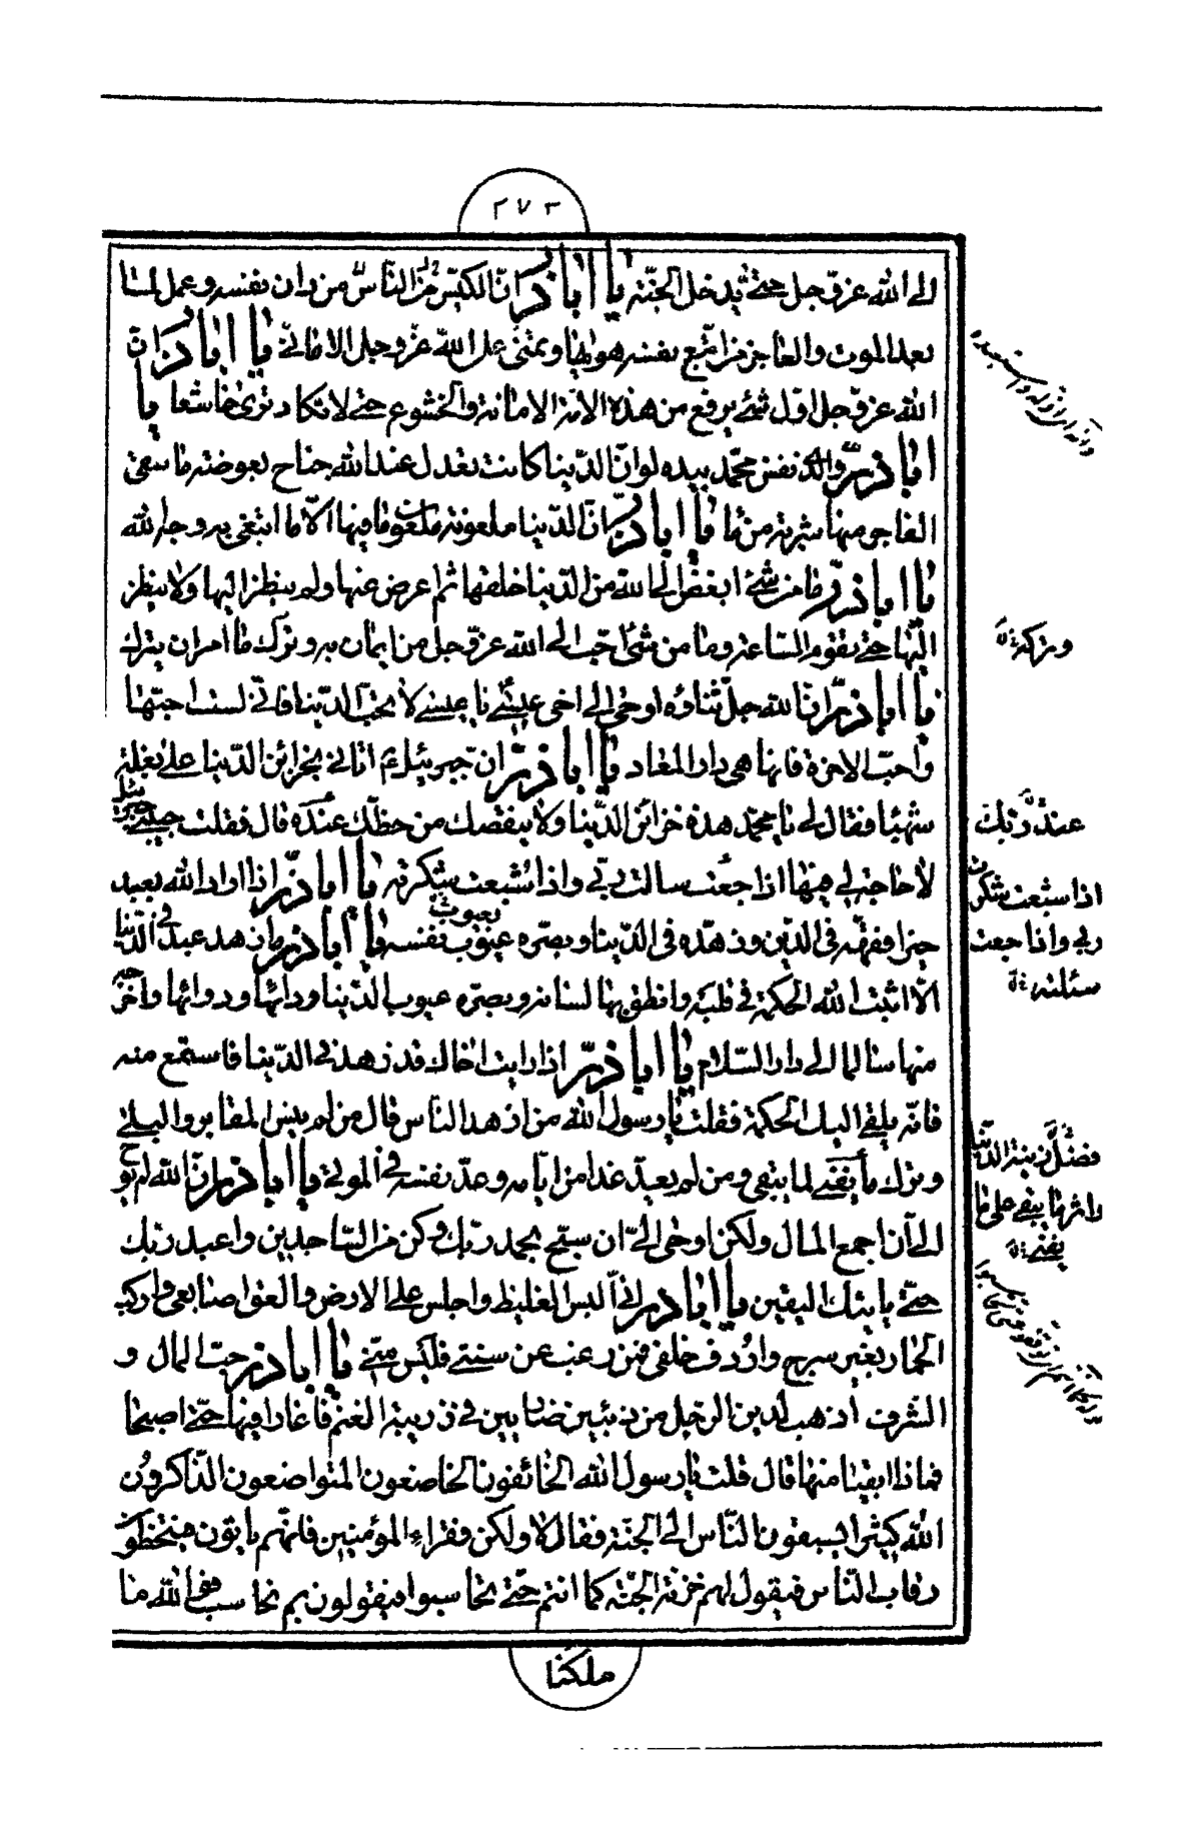 ٢٧٣
الى الله عزّ وجل حتّى يدخل الجنّة يا اباذر انّ الكيّس من الناس من دان نفسه وعمل لما
بعد الموت والعاجز من اتّبع نفسه هواها وتمنّى على الله عزّ وجل الامانى يا اباذر ان
الله عزّ وجل اول شئ يرفع من هذه الامة الامانة والخشوع حتى لا تكاد ترى خاشعا يا
اباذر والذى نفس محمّد بيده لو انّ الدّنيا كانت تعدل عند الله جناح بعوضة ما سقى
الفاجر منها شربة من ما يا اباذر انّ الدّنيا ملعونة ملعون ما فيها الّا ما ابتغى به وجه الله
يا اباذر وما من شئ ابغض الى الله من الدّنيا خلقها ثم اعرض عنها ولم ينظر اليها ولا ينظر
اليها حتى تقوم السّاعة وما من شئ احب الى الله عزّ وجل من ايمان به وترك ما امر ان يترك
وتركه
يا اباذر انّ الله جلّ ثناؤه اوحى الى اخى عيسى يا عيسى لا تحبّ الدّنيا فانّى لست احبّها
واحبّ الاخرة فانها هى دار المعاد يا اباذر ان جبرئيل ع اتانى بخزائن الدّنيا على بغلة
شهبا فقال لى يا محمّد هذه خزائن الدّنيا ولا ينقصك من حظّك عنده قال فقلت حبيبى جبرئيل
عند ربّك
لا حاجة لى فيها اذا جعت سالت ربى واذا شبعت شكرته يا اباذر اذا اراد الله بعبد
اذا شبعت شكرت
خيرا فقهه فى الدّين وزهّده فى الدّنيا وبصّره عيوب نفسه يا اباذر ما زهد عبد فى الدّنيا
بعيوب
ربى واذا جعت
الّا اثبت الله الحكمة فى قلبه وانطق بها لسانه وبصّره عيوب الدّنيا وداءها ودواءها واخرجه
سئلته
منها سالما الى دار السّلام يا اباذر اذا رايت اخاك قد زهد فى الدّنيا فاستمع منه
فانّه يلقى اليك الحكمة فقلت يا رسول الله من ازهد الناس قال من لم ينس المقابر والبلى
وترك ما يفنى لما يبقى ومن لم يعد غدا من ايامه وعدّ نفسه فى الموتى يا اباذر انّ الله لم يوح
فضل زينة الدّنيا
واثر ما يبقى على ما
يفنى
الى ان اجمع المال ولكن اوحى الىّ ان سبّح بحمد ربّك وكن من السّاجدين واعبد ربّك
حتّى ياتيك اليقين يا اباذر انى البس الغليظ واجلس على الارض والعق اصابعى واركب
الحمار بغير سرج واردف خلفى فمن رغب عن سنتى فليس منّى يا اباذر حبّ المال و
الشرف اذهب لدين الرجل من ذئبين ضاريين فى زريبة الغنم فاغارا فيها حتّى اصبحا
فماذا ابقيا منها قال قلت يا رسول الله الخائفون الخاضعون المتواضعون الذّاكرون
الله كثيرا يسبقون النّاس الى الجنّة فقال لا ولكن فقراء المؤمنين فانّهم ياتون فيتخطّون
رقاب النّاس فيقول لهم خزنة الجنّة كما انتم حتّى تحاسبوا فيقولون بم نحاسب فو الله ما
ملكنا